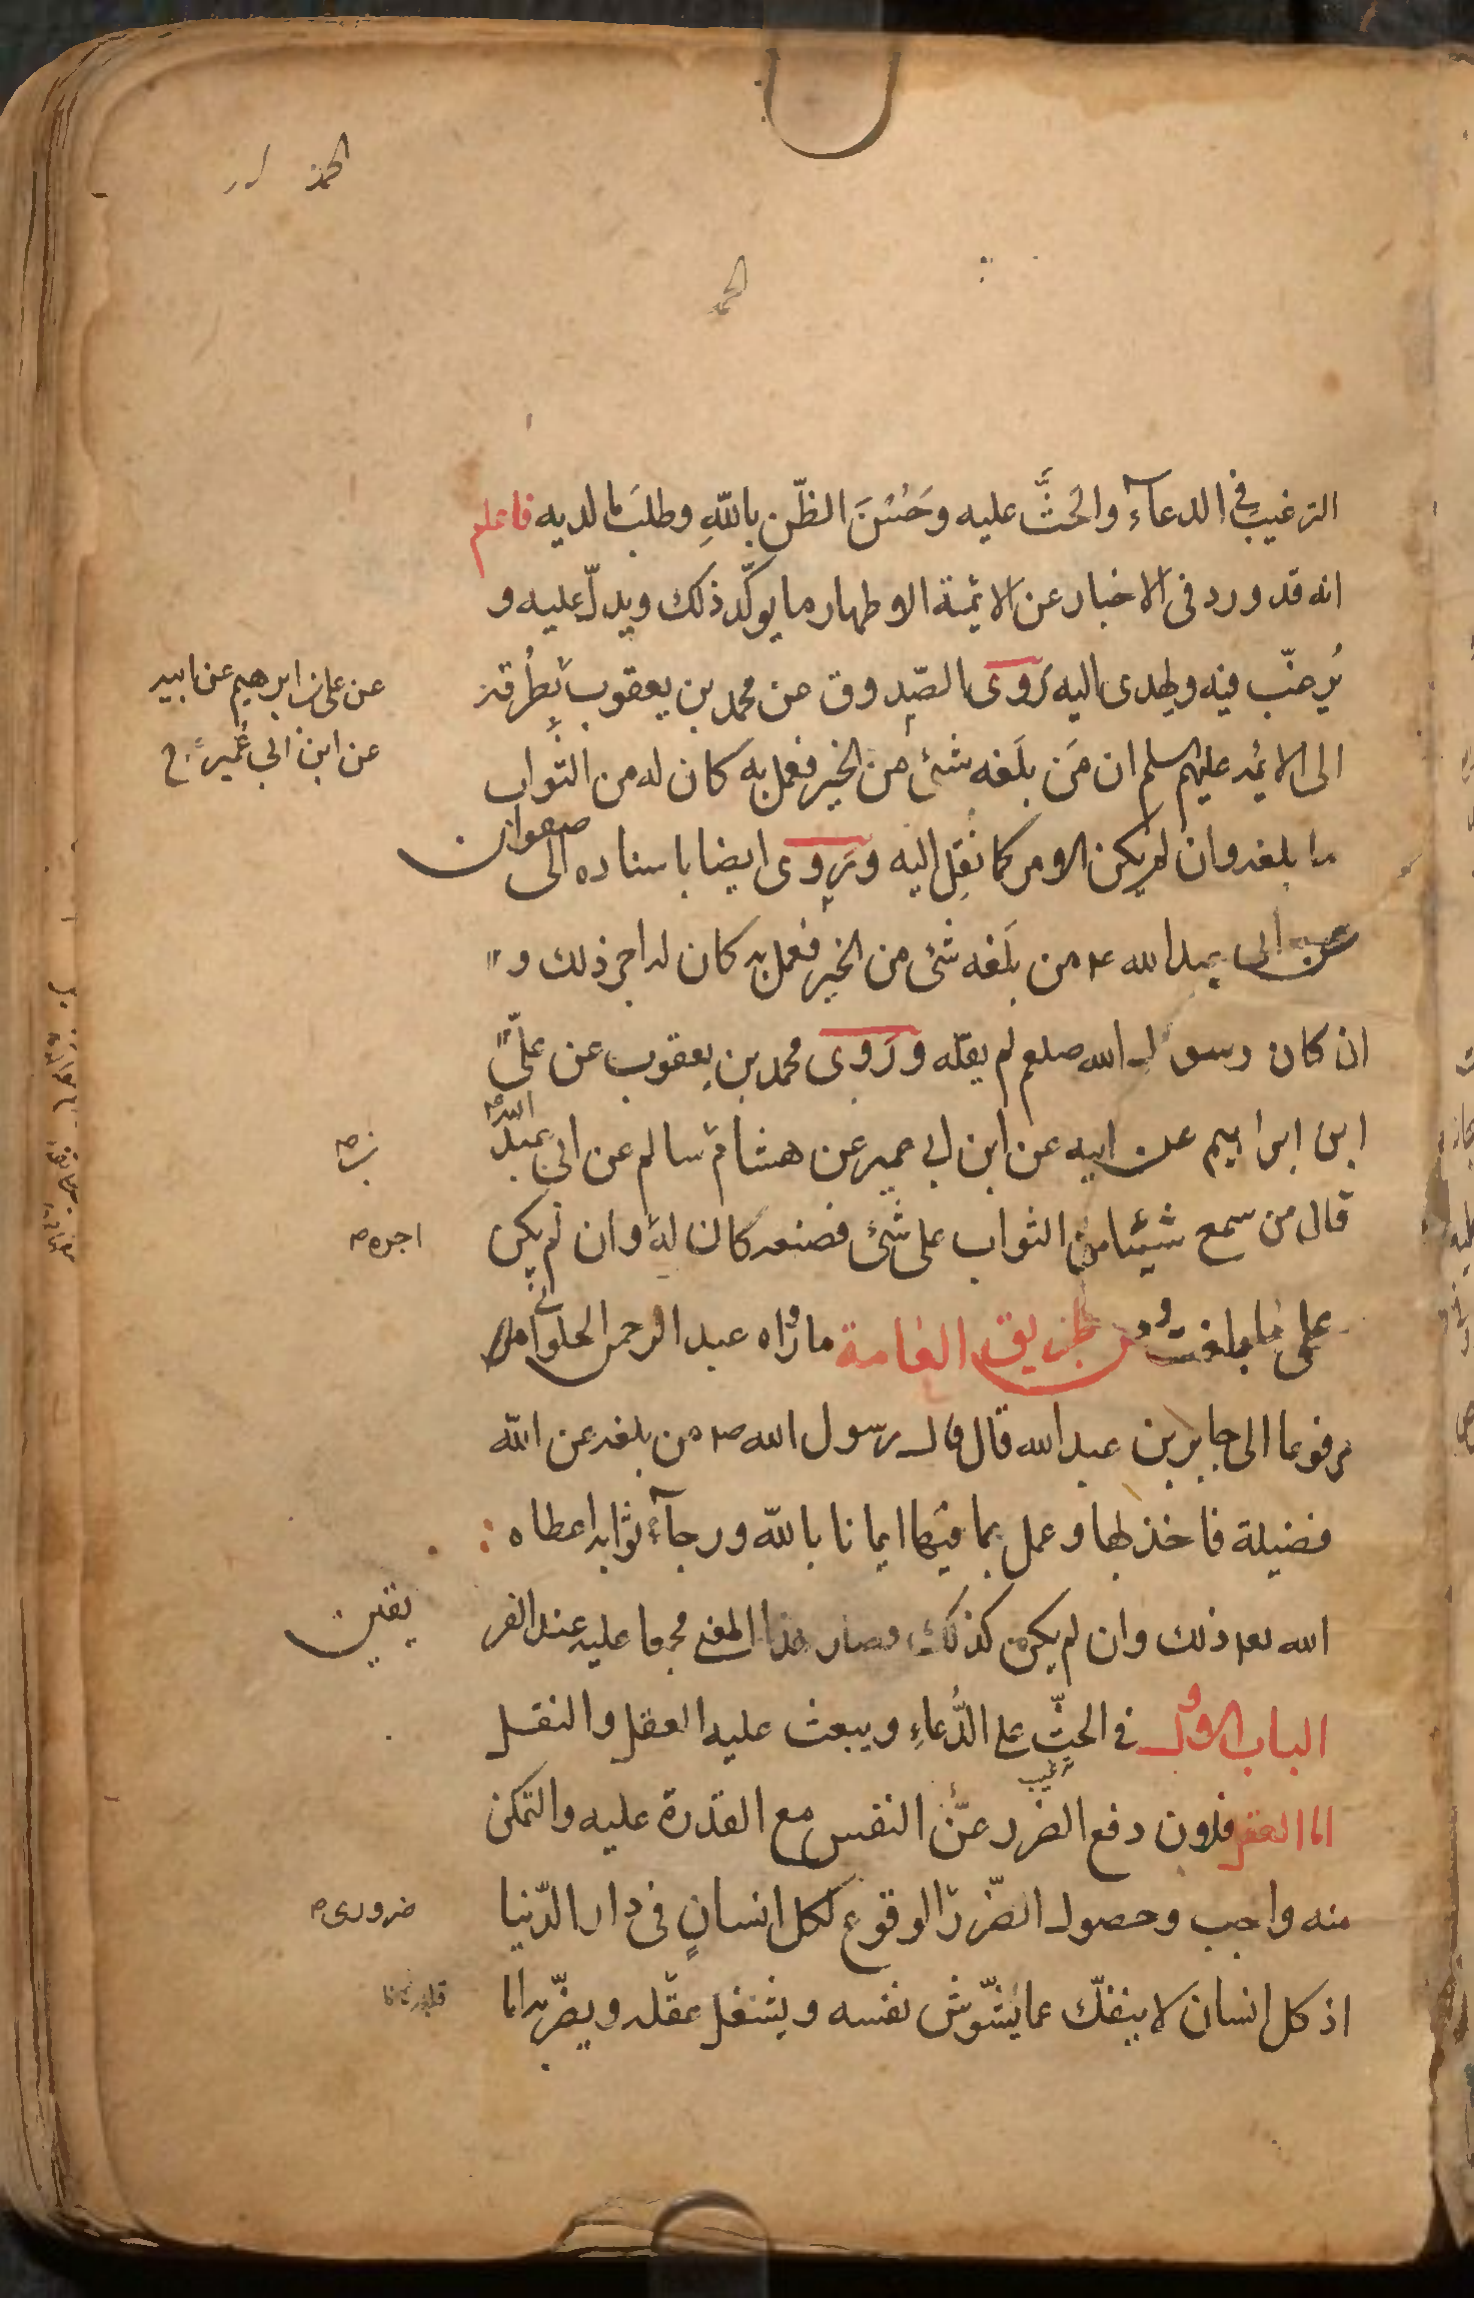 الترغيب في الدعآء والحثَّ عليه وحُسْنَ الظّن باللّهِ وطلبَ ما لديه فاعلم
انه قد ورد فى الاخبار عن الائمة الاطهار ما يوكّد ذلك ويدلّ عليه و
يُرغّب فيه ويهدى اليه رَوى الصّدوق عن محمد بن يعقوب بِطُرقه
عن على بن ابرهيم عن ابيه
عن ابن ابي عُمير
الى الائمه عليهم السلم ان مَن بلَغه شئ من الخير فعمل به كان له من الثواب
ما بلغه وان لم يكن الامر كما نُقِل اليه ورَوى ايضا باسناده الى صفوان
عن ابى عبد الله ع من بلَغه شئ من الخير فعمل به كان له اجر ذلك و
ان كان رسول الله صلعم لم يقله ورَوى محمد بن يعقوب عن علىّ
ابن ابراهيم عن ابيه عن ابن ابي عمير عن هشام سالم عن ابى عبد الله
بن
قال من سمع شيئا من الثواب على شئ فصنعه كان له وان لم يكن
اجره
على ما بلغه ومن طريق العامة ما رواه عبد الرحمن الحلوانى
مرفوعا الى جابر بن عبد الله قال قال رسول الله ص من بلغه عن الله
فضيلة فاخذ بها وعمل بما فيها ايمانا بالله ورجآء ثوابه اعطاه
الله تع ذلك وان لم يكن كذلك فصار هذا المعنى مجمعا عليه عند الفر
يقين
الباب الاول في الحثّ على الدُّعاءِ ويبعث عليه العقل والنقل
ترغيب
اما العقل فلان دفع الضرر عن النفس مع القدرة عليه والتمكن
منه واجب وحصول الضّرر الوقوع لكل انسانٍ فى دار الدّنيا
ضرورى
اذ كل انسان لا ينفكّ عما يُشوّش نفسه ويشغل عقله ويضرّ به اما